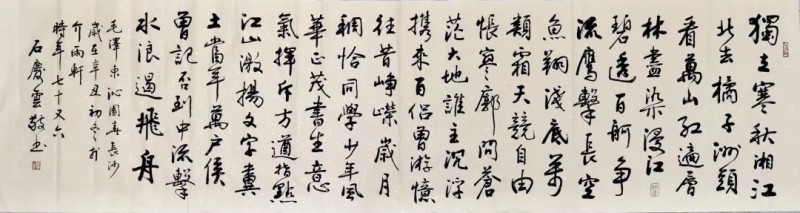 獨立寒秋湘江
北去橘子洲頭
看萬山紅遍層
林盡染漫江
碧透百舸争
流鷹擊長空
魚翔淺底萬
類霜天競自由
悵寥廓問蒼
茫大地誰主沉浮
携來百侣曾游憶
往昔崢嶸歲月
稠恰同學少年風
華正茂書生意
氣揮斥方遒指點
江山激揚文字糞
土當年萬户侯
曾記否到中流擊
水浪遏飛舟
毛澤東沁園春長沙
歲在辛丑初冬於
介雨軒
時年七十又六
石慶雲敬书